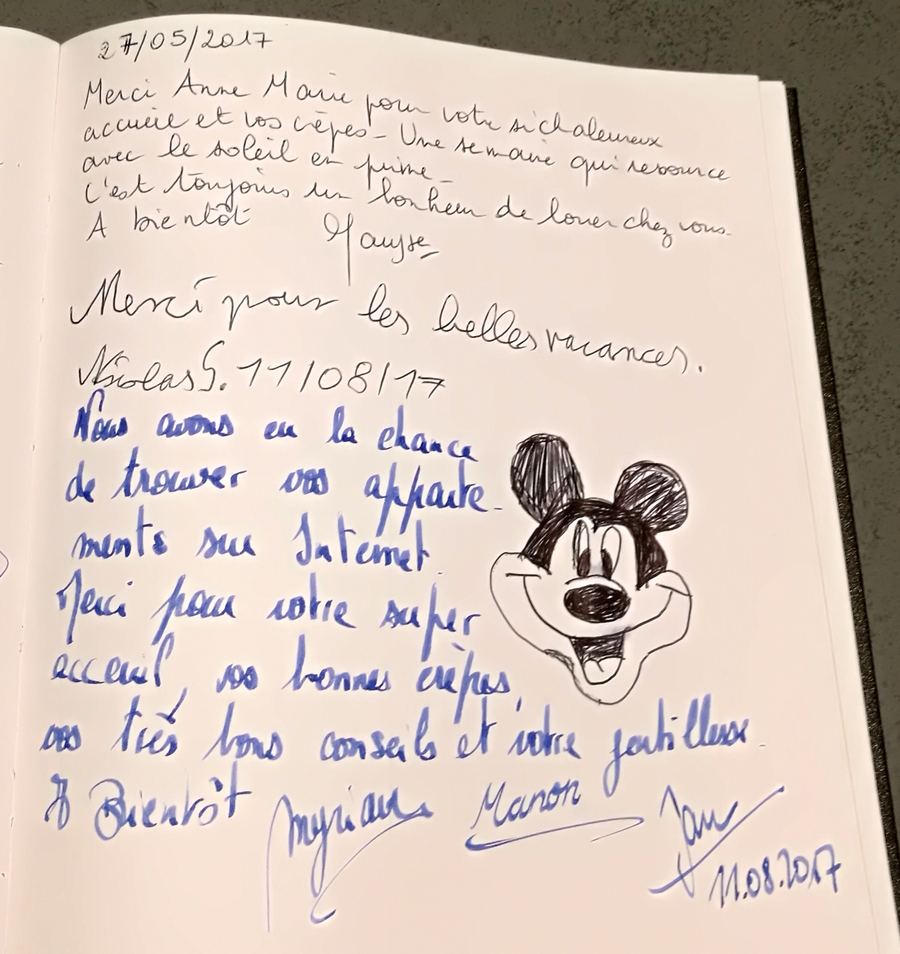 27/05/2017
Merci Anne Marie pour votre si chaleureux
accueil et vos crêpes - Une semaine qui resource
avec le soleil en prime -
C'est toujours un bonheur de louer chez vous.
A bientôt
Merci pour les belles vacances.
Nicolas S. 11/08/17
Nous avons eu la chance
de trouver vos apparte-
ments sur Internet.
Merci pour votre super
acceuil, vos bonnes crêpes,
vos très bons conseils et votre gentillesse.
A Bientôt Myriam Manon
11.08.2017